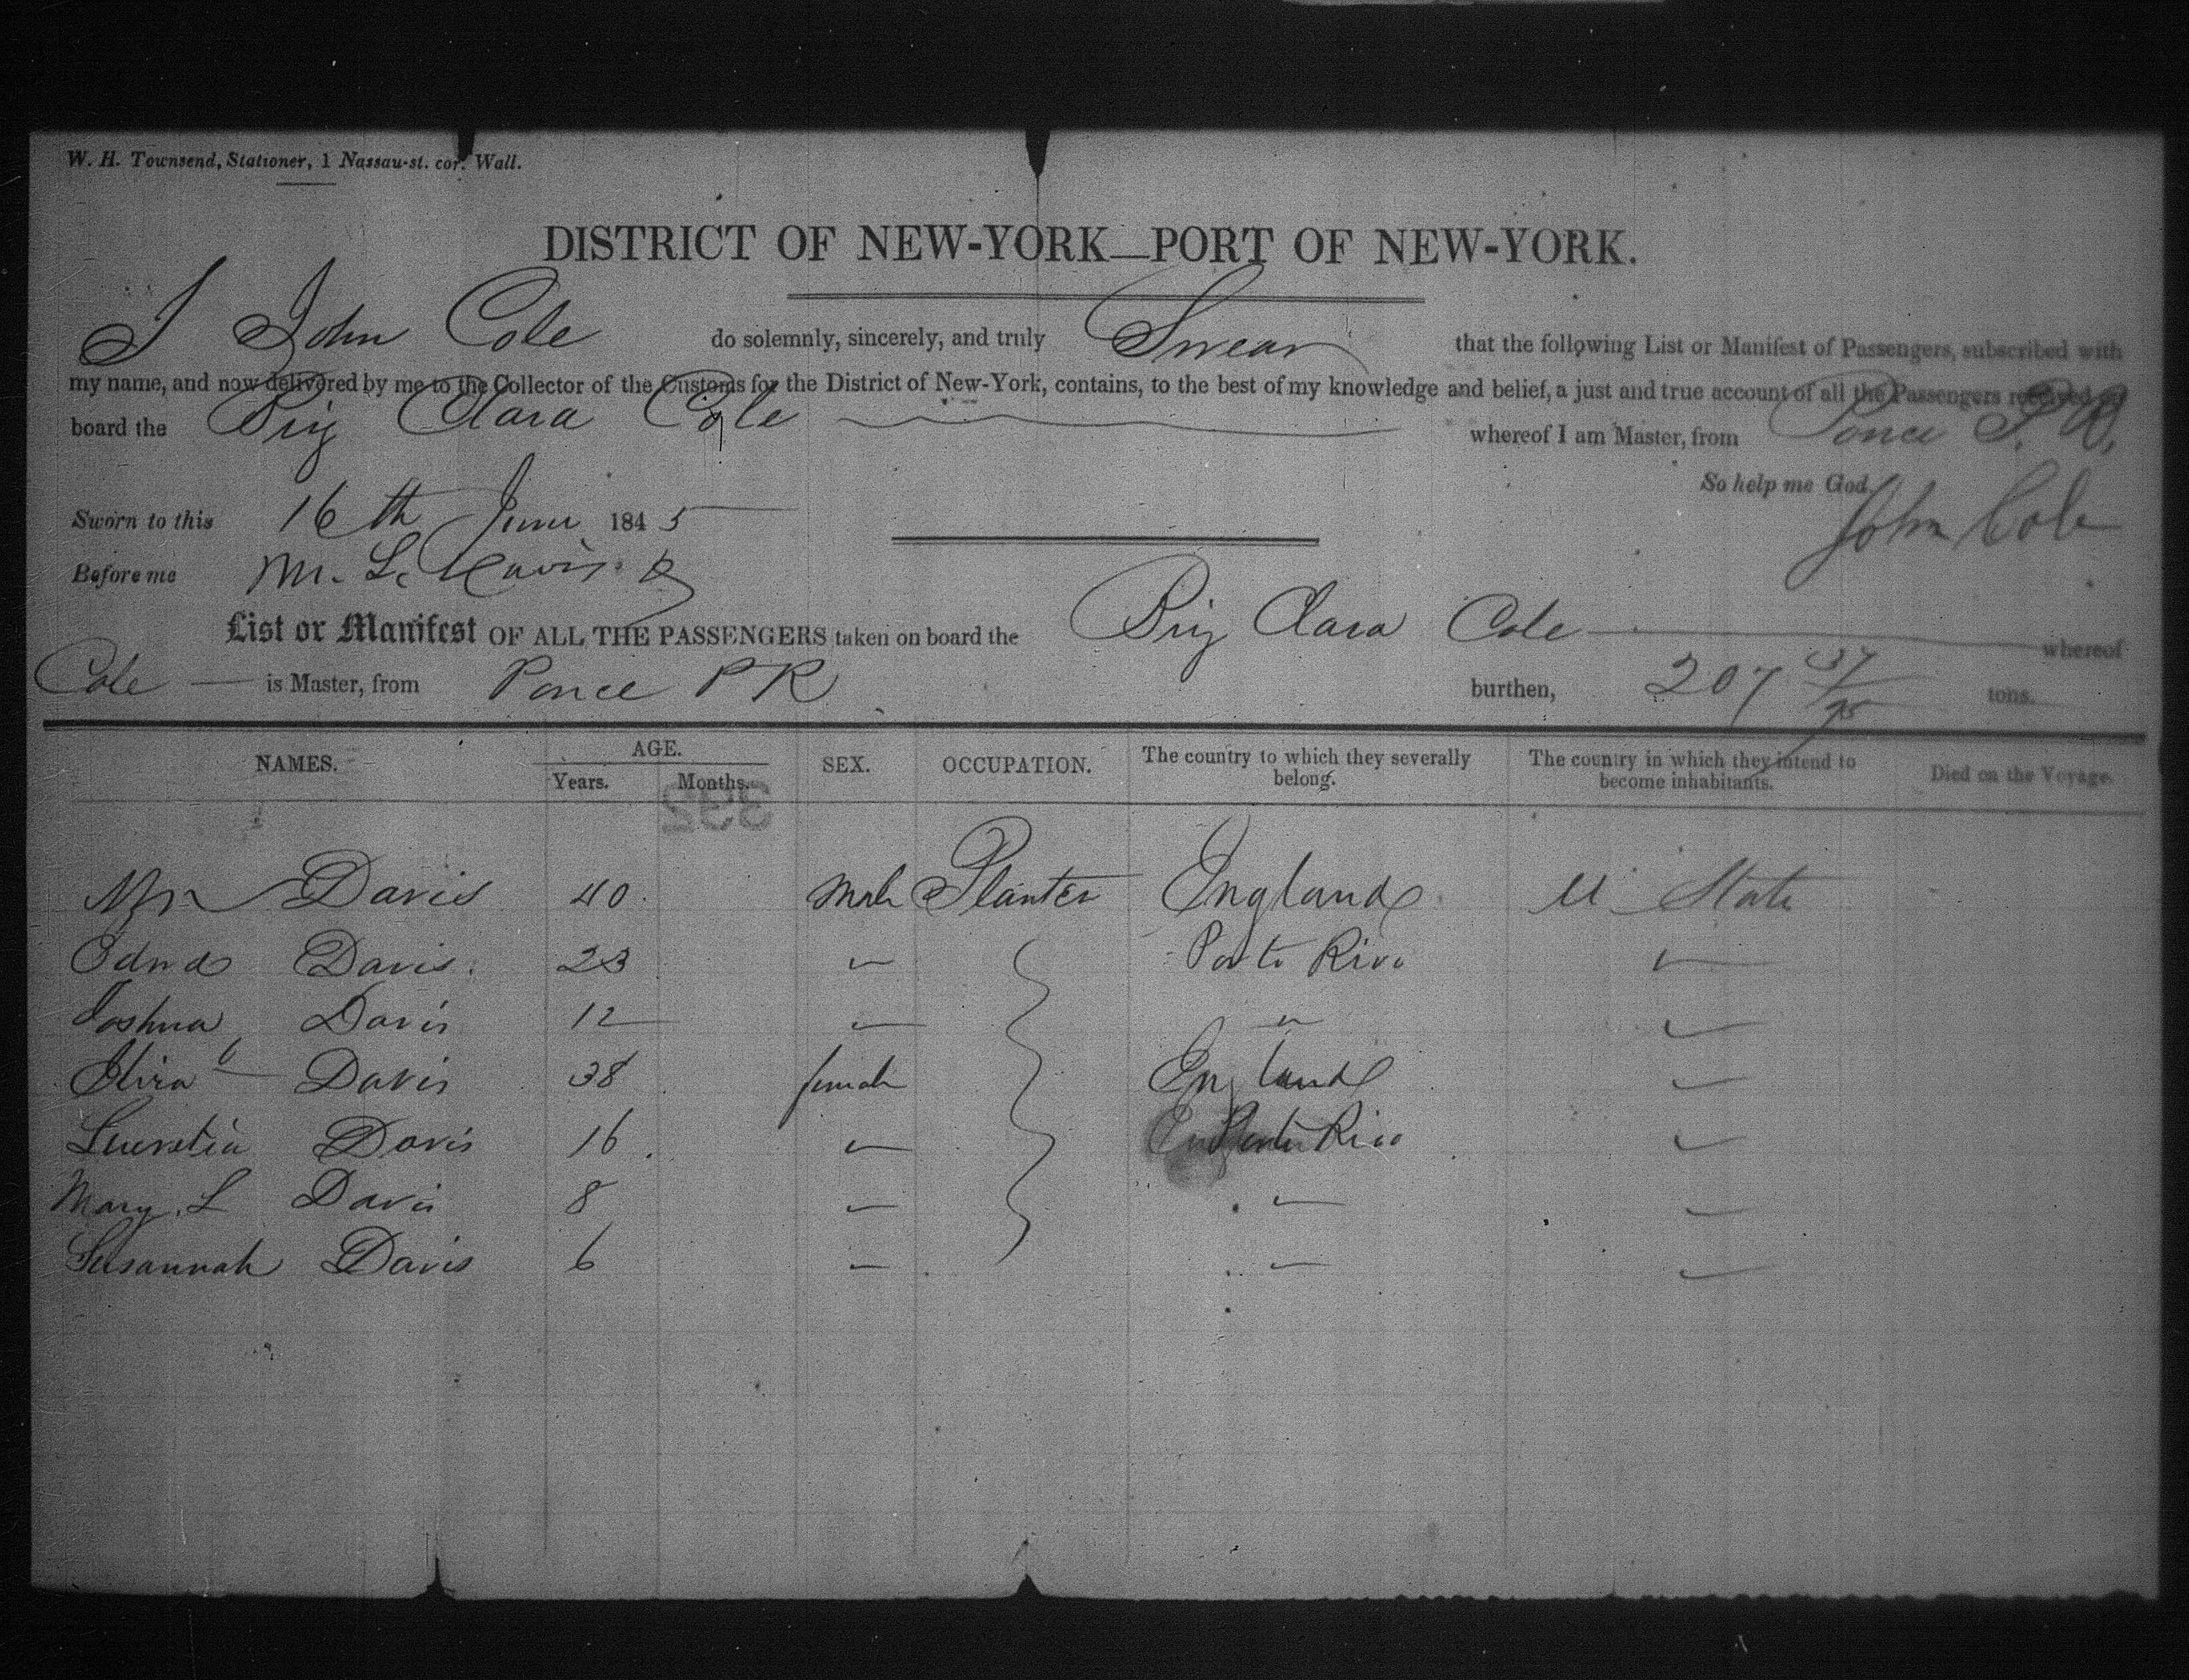 W. H. Townsend, Stationer, 1 Nassau-st. cor. Wall.
DISTRICT OF NEW-YORK—PORT OF NEW-YORK.
I John Cole do solemnly, sincerely, and truly Swear that the following List or Manifest of Passengers, subscribed with
my name, and now delivered by me to the Collector of the Customs for the District of New-York, contains, to the best of my knowledge and belief, a just and true account of all the Passengers received on
board the Brig Clara Cole whereof I am Master, from Ponce P. R.
So help me God.
John Cole
Sworn to this 16th June 1845
Before me M. L. Davis
List or Manifest OF ALL THE PASSENGERS taken on board the Brig Clara Cole whereof
Cole is Master, from Ponce P R burthen, 207 37/95 tons.
NAMES. AGE. SEX. OCCUPATION. The country to which they severally belong. The country in which they intend to become inhabitants. Died on the Voyage.
Years. Months.
392
Davis 40 Male Planter England U State
Davis 23 Porto Rico
Joshua Davis 12 "
Davis 38 female England
Lucretia Davis 16 Porto Rico
Mary L Davis 8
Susannah Davis 6